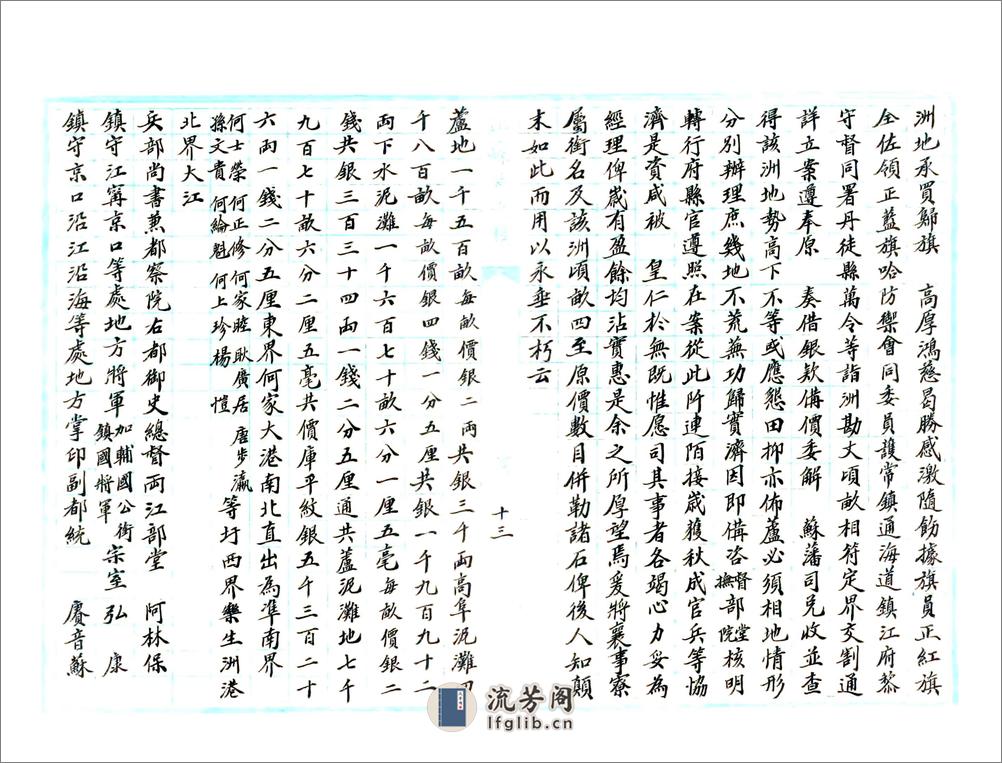 洲地承買歸旗　高厚鴻慈曷勝感激隨飭據旗員正紅旗
全佐領正藍旗哈防禦會同委員護常鎮通海道鎮江府黎
守督同署丹徒縣萬令等詣洲勘丈頃畝相符定界交割通
詳立案遵奉原　奏借銀欵備價委解　蘇藩司兑收並查
得該洲地勢高下不等或應墾田抑亦佈蘆必須相地情形
分別辦理庶幾地不荒蕪功歸實濟因即備咨督撫部堂院核明
轉行府縣官遵照在案從此阡連陌接歲穫秋成官兵等協
濟是資咸被　皇仁於無既惟愿司其事者各竭心力妥為
經理俾歲有盈餘均沾實惠是余之所厚望焉爰將襄事寮
屬銜名及該洲頃畝四至原價數目併勒諸石俾後人知顛
末如此而用以永垂不朽云
十三
蘆地一千五百畝每畝價銀二兩共銀三千兩高阜泥灘四
千八百畝每畝價銀四錢一分五厘共銀一千九百九十二
兩下水泥灘一千六百七十畝六分一厘五毫每畝價銀二
錢共銀三百三十四兩一錢二分五厘通共蘆泥灘地七千
九百七十畝六分二厘五毫共價庫平紋銀五千三百二十
六兩一錢二分五厘東界何家大港南北直出為準南界
何士榮　何正修　何家睦耿廣居　唐步瀛
孫文貴　何綸魁　何上珍楊　愷　等圩西界樂生洲港
北界大江
兵部尚書兼都察院右都御史總督兩江部堂　阿林保
鎮守江寧京口等處地方將軍加輔國公銜鎮國將軍宗室　弘　康
鎮守京口沿江沿海等處地方掌印副都統　賡音蘇
流芳阁
lfglib.cn